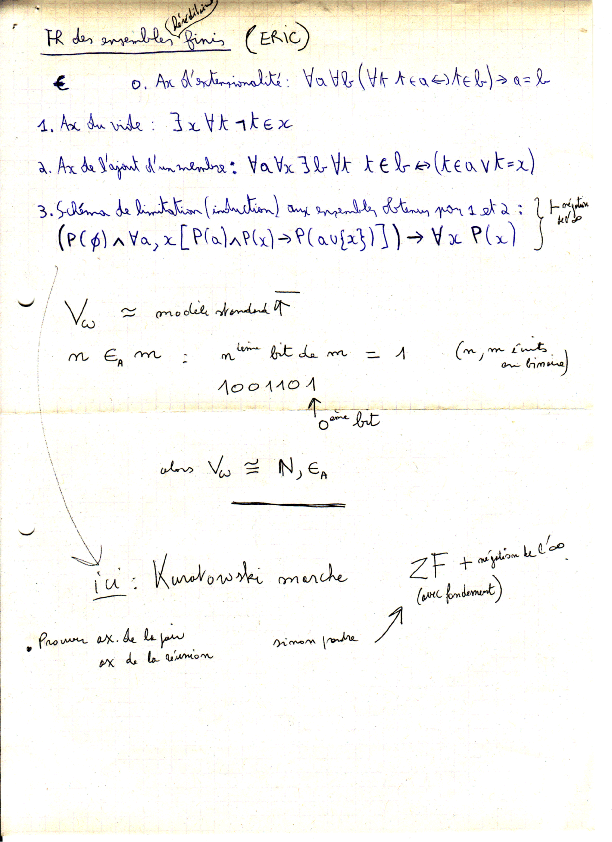 FR des ensembles héréditairement finis (ERIC)
∈ 0. Ax d'extensionalité : ∀a∀b(∀t t∈a↔t∈b)→a=b
1. Ax du vide : ∃x∀t¬t∈x
2. Ax de l'ajout d'un membre : ∀a∀x∃b∀t t∈b↔(t∈a∨t=x)
3. Schéma de limitation (induction) aux ensembles obtenus par 1 et 2 :
(P(∅)∧∀a,x[P(a)∧P(x)→P(a∪{x})])→∀x P(x)
⊢ négation de l'∞
Vω ≃ modèle standard ↑
n ∈A m : n ième bit de m = 1 (n, m écrits en binaire)
1001101
↑
0ème bit
alors Vω ≅ ℕ, ∈A
ici : Kuratowski marche
ZF + négation de l'∞
(avec fondement)
• Prouver ax. de la paire
ax de la réunion
sinon prendre